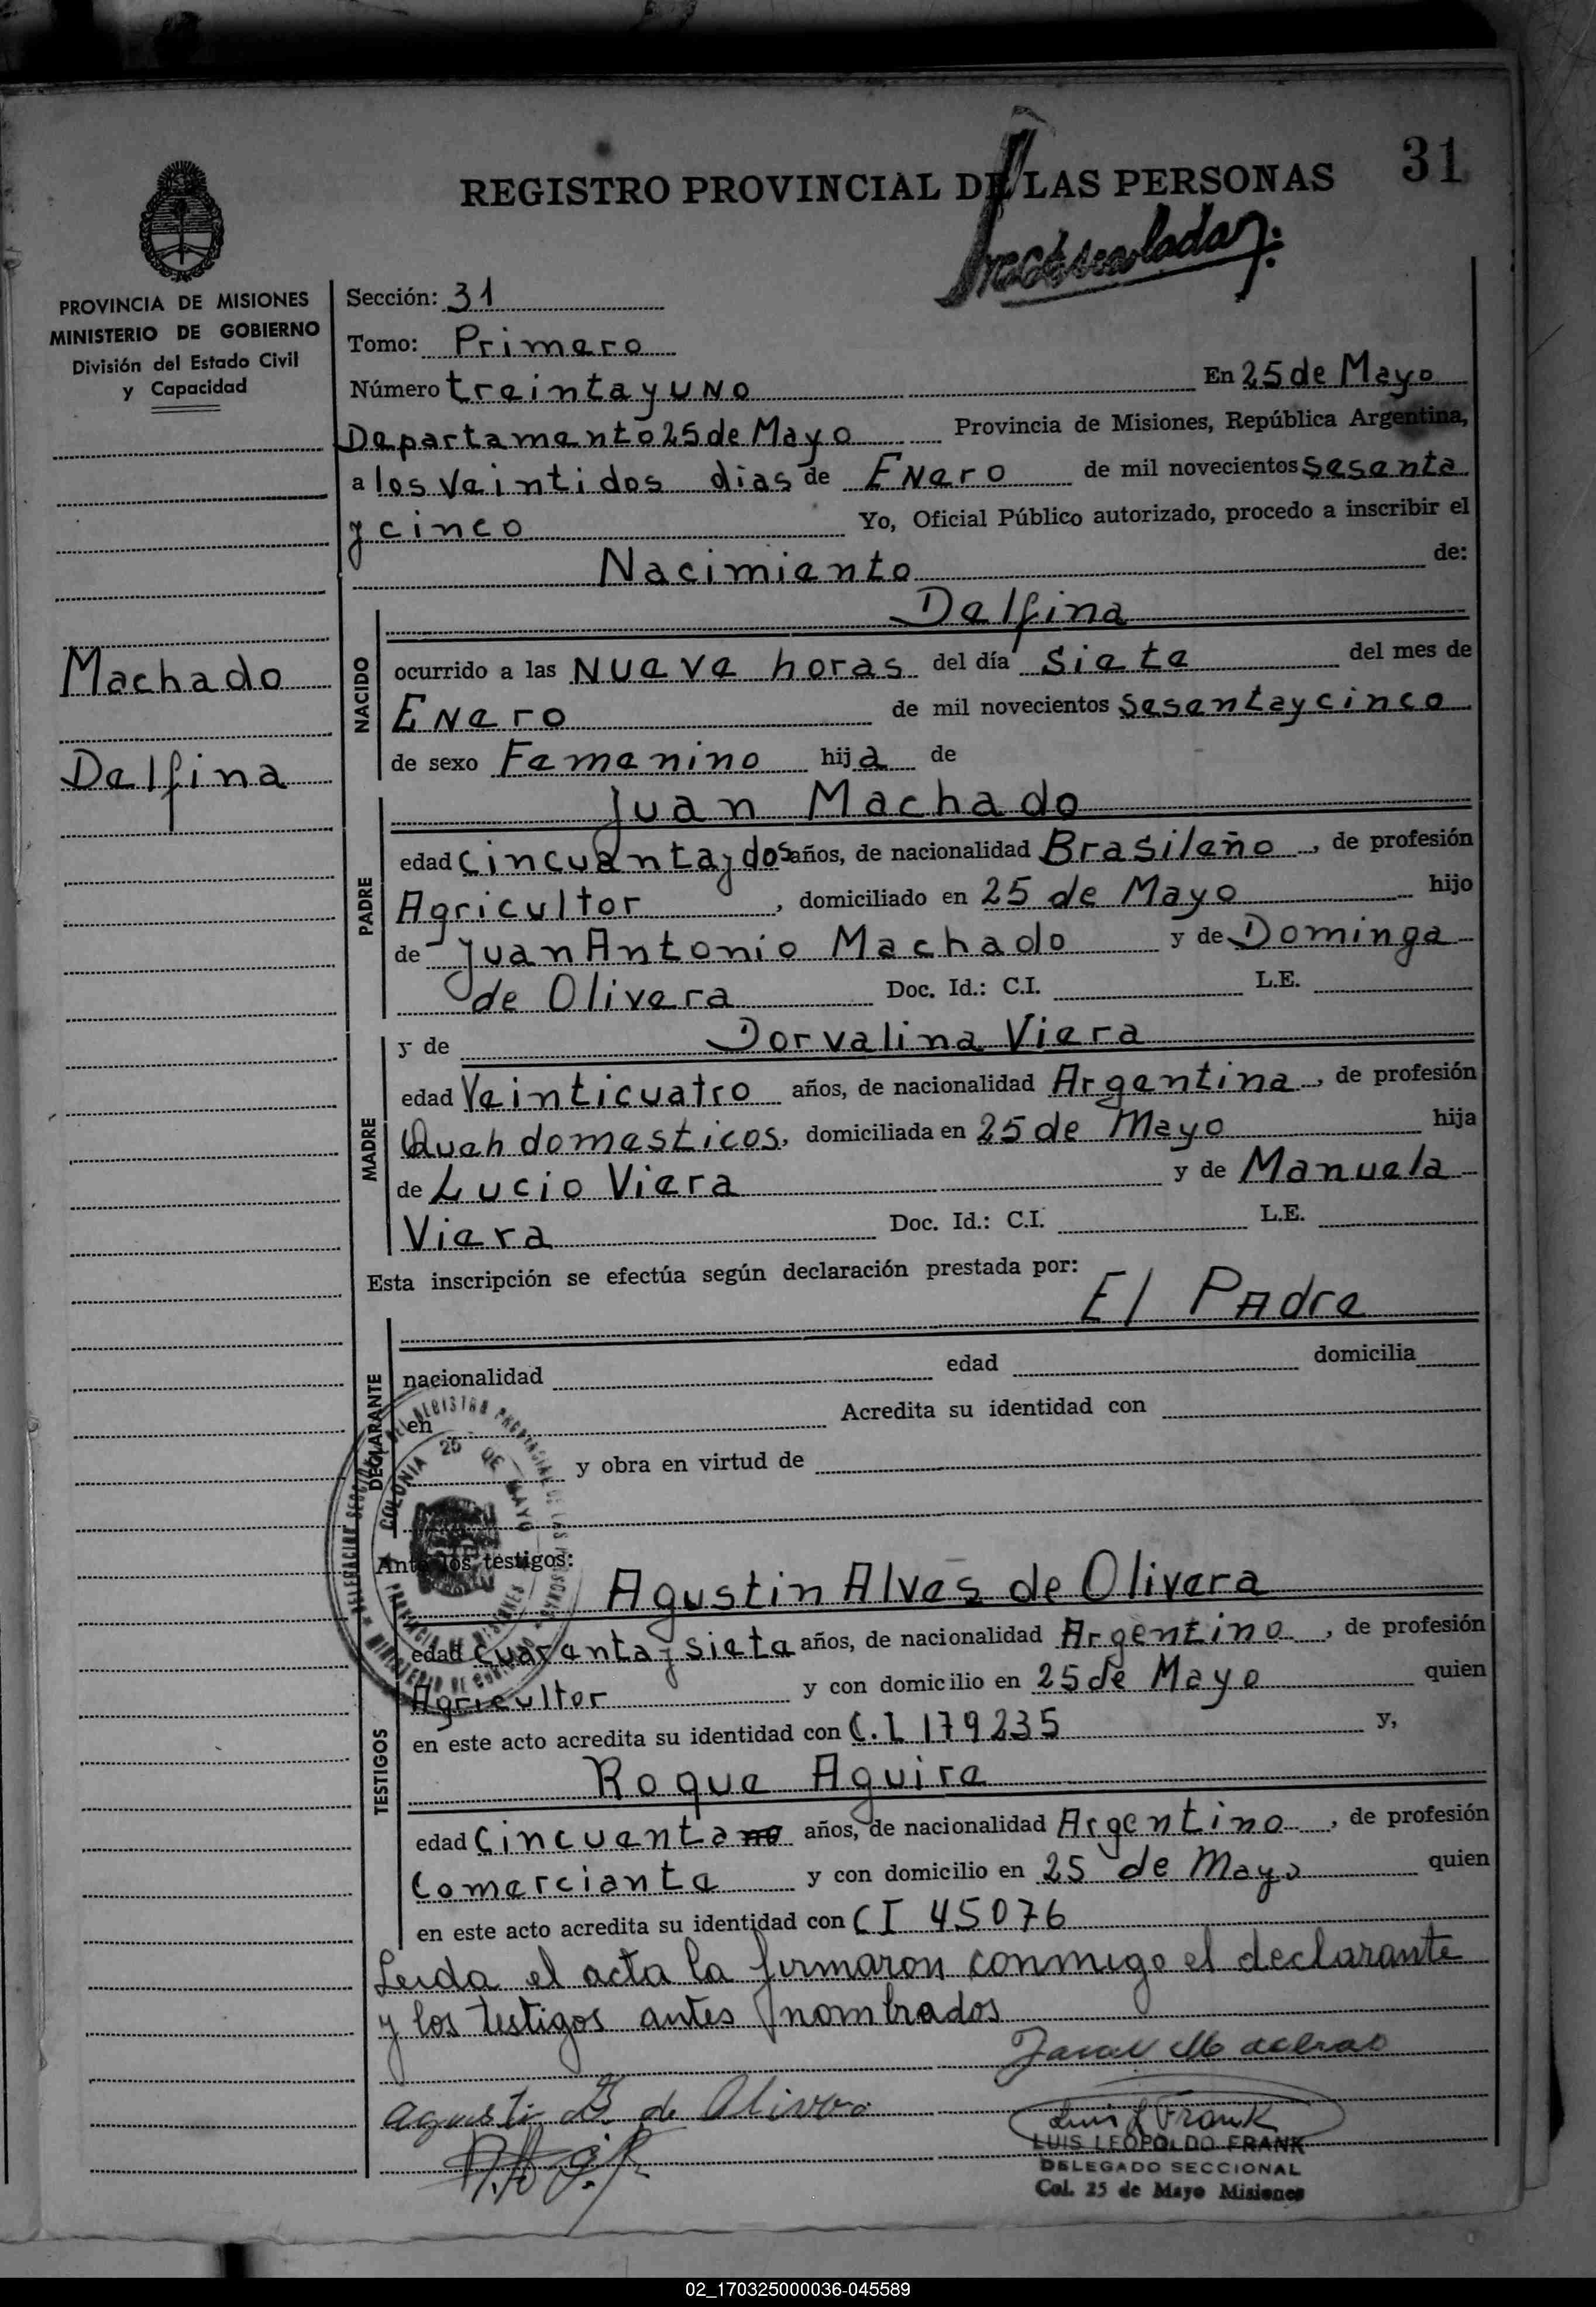 31
REGISTRO PROVINCIAL DE LAS PERSONAS
PROVINCIA DE MISIONES
MINISTERIO DE GOBIERNO
División del Estado Civil
y Capacidad
Sección: 31
Tomo: Primero
Número treinta y uno En 25 de Mayo
Departamento 25 de Mayo Provincia de Misiones, República Argentina,
a los veintidos dias de Enero de mil novecientos sesenta
y cinco Yo, Oficial Público autorizado, procedo a inscribir el
Nacimiento de:
Machado
Delfina
NACIDO
Delfina
ocurrido a las nueve horas del día siete del mes de
Enero de mil novecientos sesentaycinco
de sexo Femenino hija de
PADRE
Juan Machado
edad cincuenta y dos años, de nacionalidad Brasileño, de profesión
Agricultor, domiciliado en 25 de Mayo hijo
de Juan Antonio Machado y de Dominga
de Olivera Doc. Id.: C.I. L.E.
MADRE
y de Dorvalina Viera
edad Veinticuatro años, de nacionalidad Argentina, de profesión
domesticos, domiciliada en 25 de Mayo hija
de Lucio Viera y de Manuela
Viera Doc. Id.: C.I. L.E.
Esta inscripción se efectúa según declaración prestada por:
El Padre
DECLARANTE
nacionalidad edad domicilia
en Acredita su identidad con
y obra en virtud de
COLONIA 25 DE MAYO
Ante los testigos:
TESTIGOS
Agustin Alves de Olivera
edad cuarenta y siete años, de nacionalidad Argentino, de profesión
Agricultor y con domicilio en 25 de Mayo quien
en este acto acredita su identidad con C.I 179235 y,
Roque Aguire
edad Cincuenta años, de nacionalidad Argentino, de profesión
Comerciante y con domicilio en 25 de Mayo quien
en este acto acredita su identidad con CI 45076
Leida el acta la firmaron conmigo el declarante
y los testigos antes nombrados
Juan Machado
de Olivera
Luis L Frank
LUIS LEOPOLDO FRANK
DELEGADO SECCIONAL
Col. 25 de Mayo Misiones
02_170325000036-045589